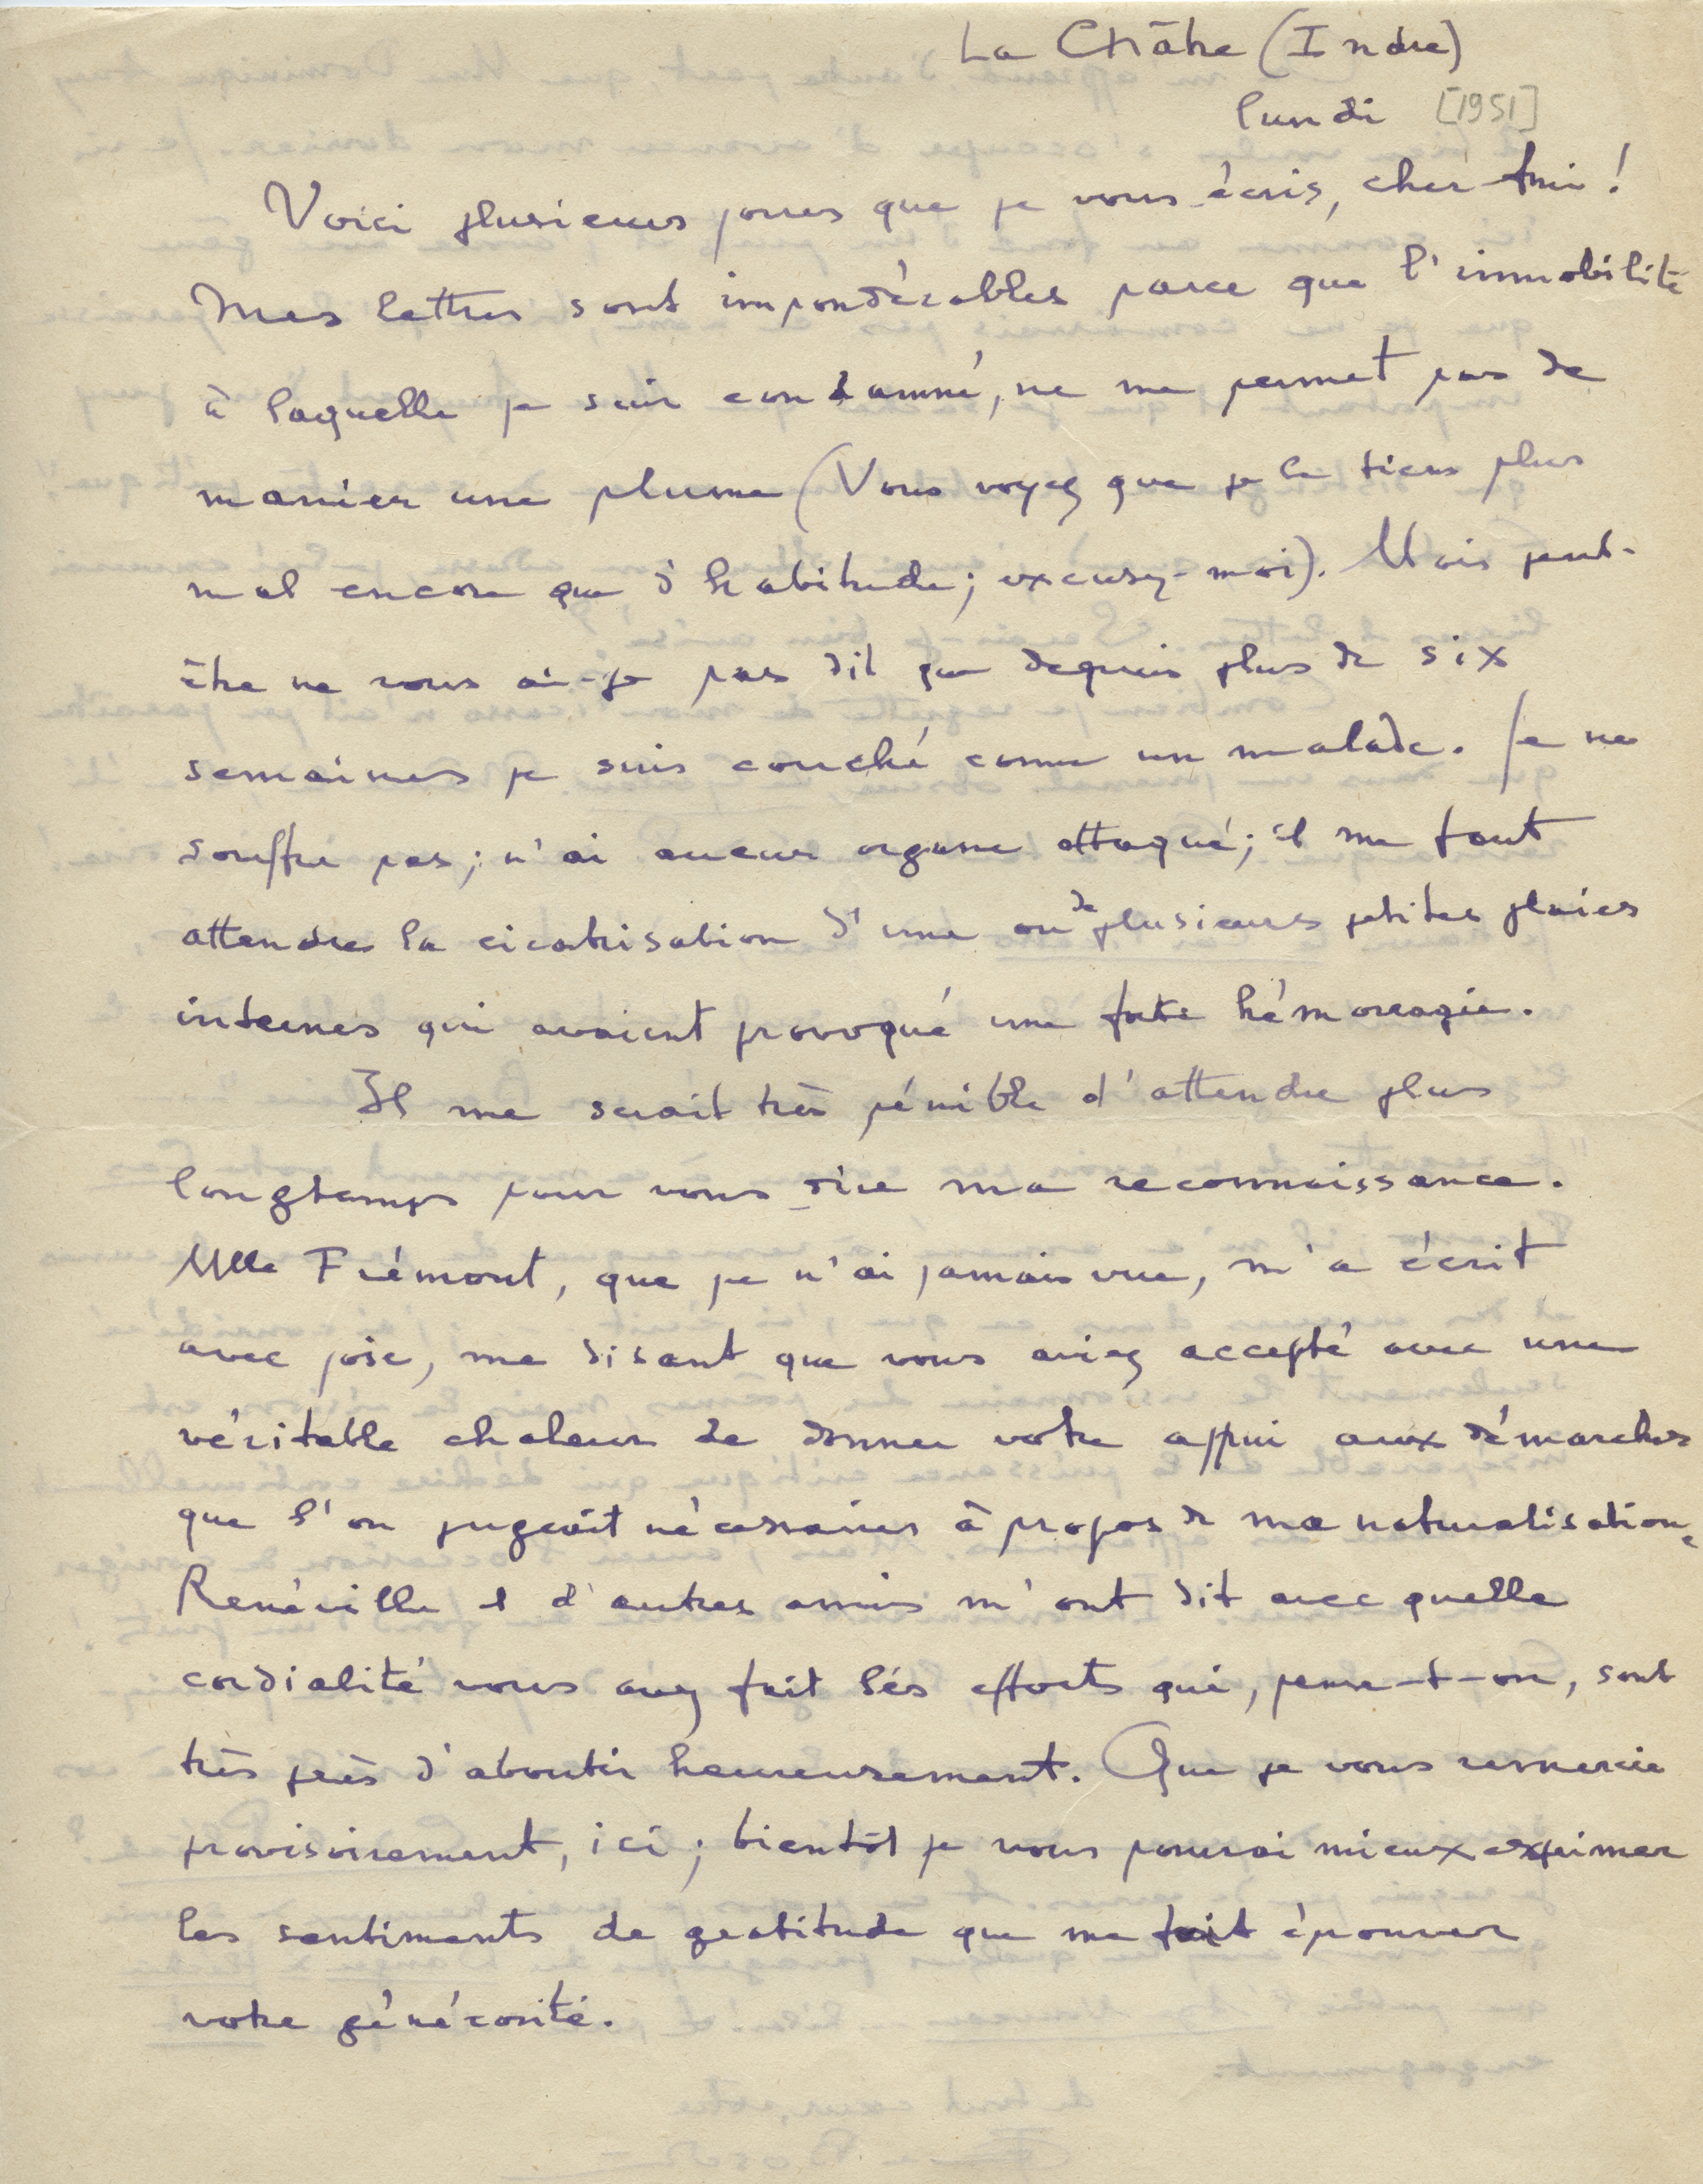 La Châtre (Indre)
lundi [1951]
Voici plusieurs jours que je vous écris, cher Ami !
Mes lettres sont impondérables parce que l'immobilité
à laquelle je suis condamné, ne me permet pas de
manier une plume (Vous voyez que je la tiens plus
mal encore que d'habitude; excusez-moi). Mais peut-
être ne vous ai-je pas dit que depuis plus de six
semaines je suis couché comme un malade. Je ne
souffre pas; n'ai aucun organe attaqué; il me faut
attendre la cicatrisation d'une ou de plusieurs petites plaies
internes qui avaient provoqué une forte hémorragie.
Il me serait très pénible d'attendre plus
longtemps pour vous dire ma reconnaissance.
Mlle Frémont, que je n'ai jamais vue, m'a écrit
avec joie, me disant que vous aviez accepté avec une
véritable chaleur de donner votre appui aux démarches
que l'on jugeait nécessaires à propos de ma naturalisation.
Renéville et d'autres amis m'ont dit avec quelle
cordialité vous avez fait les efforts qui, pense-t-on, sont
très près d'aboutir heureusement. Que je vous remercie
provisoirement, ici; bientôt je vous pourrai mieux exprimer
les sentiments de gratitude que me fait éprouver
votre générosité.